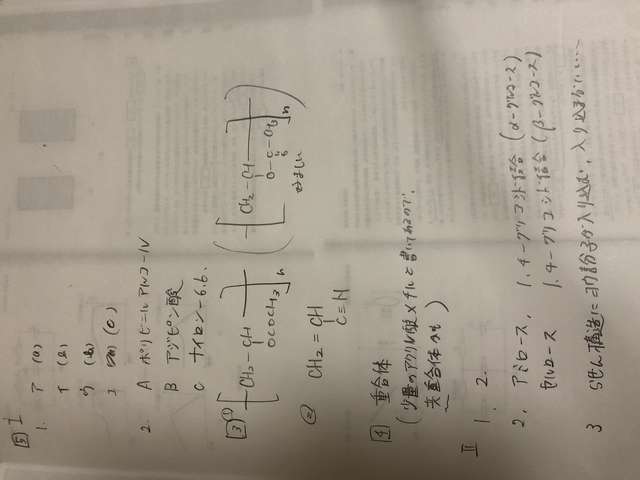 5 I
1. ア (a)
イ (a)
ウ (b)
エ (c)
2. A ポリビニールアルコール
B アジピン酸
C ナイロン-6.6.
3 (1) [CH2-CH]n
OCOCH3
([CH2-CH]n)
O-C-CH3
O
好ましい
(2) CH2=CH
C≡H
4 重合体
(少量のアクリル酸メチルと書いてあるので、
共重合体かも)
II
1. 2.
2. アミロース, 1.4-グリコシド結合 (α-グルコース)
セルロース 1.4-グリコシド結合 (β-グルコース)
3 らせん構造にヨウ素分子が入り込む, 入り込まない…